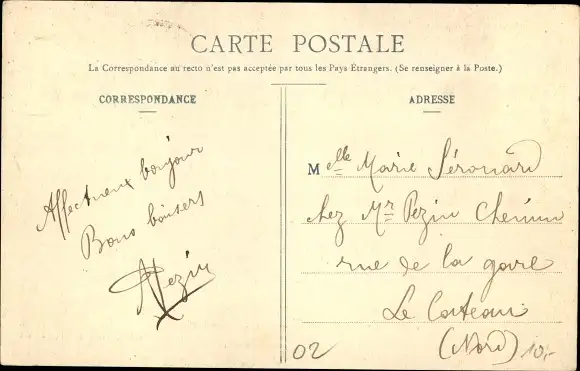 CARTE POSTALE
La Correspondance au recto n'est pas acceptée par tous les Pays Étrangers. (Se renseigner à la Poste.)
CORRESPONDANCE
Affectueux bonjour
Bons baisers
Pezin
ADRESSE
Melle Marie Sérouard
chez Mr Pezin
rue de la gare
Le Cateau
(Nord)
02
10,-